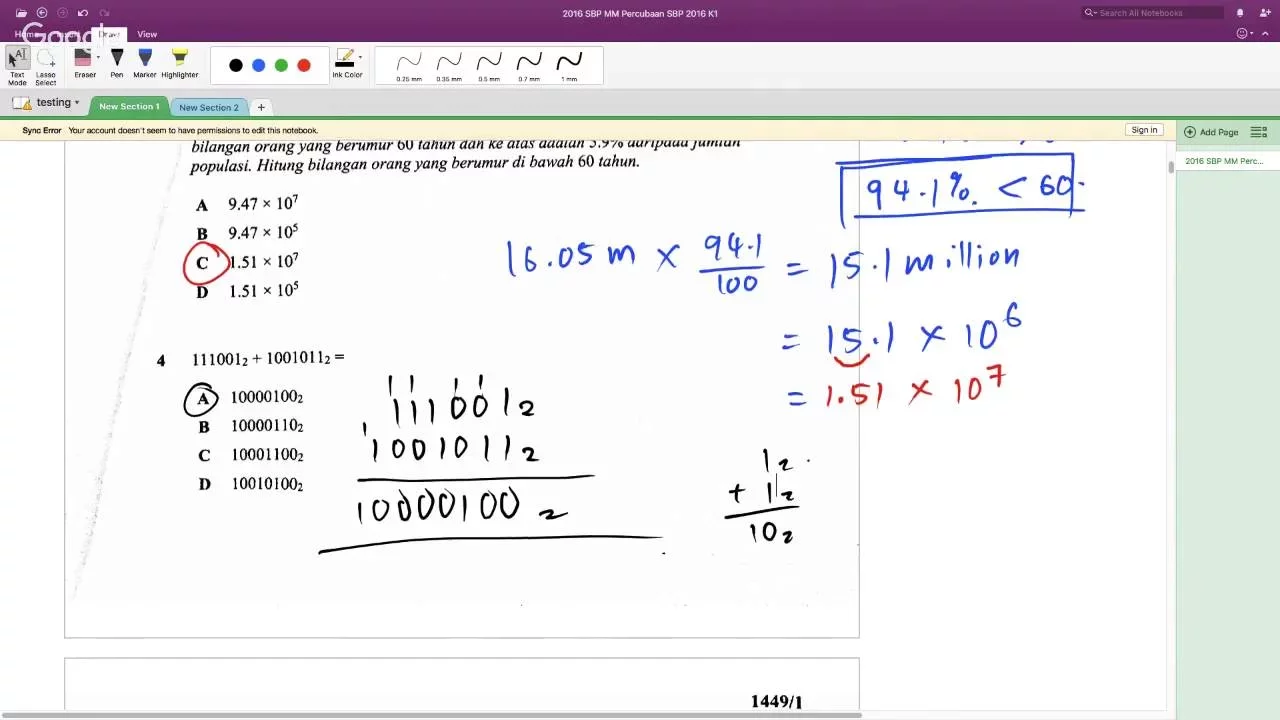 2016 SBP MM Percubaan SBP 2016 K1
Search All Notebooks
Home Draw View
Google
Text Mode
Lasso Select
Eraser
Pen
Marker
Highlighter
Ink Color
0.25 mm 0.35 mm 0.5 mm 0.7 mm 1 mm
testing New Section 1 New Section 2 +
Sync Error Your account doesn't seem to have permissions to edit this notebook. Sign in
Add Page
2016 SBP MM Perc...
bilangan orang yang berumur 60 tahun dan ke atas adalah 5.9% daripada jumlah
populasi. Hitung bilangan orang yang berumur di bawah 60 tahun.
94.1% < 60.
A 9.47 × 10⁷
B 9.47 × 10⁵
C 1.51 × 10⁷
D 1.51 × 10⁵
16.05 m × 94.1/100 = 15.1 million
= 15.1 × 10⁶
= 1.51 × 10⁷
4 111001₂ + 1001011₂ =
A 10000100₂
B 10000110₂
C 10001100₂
D 10010100₂
1 1 1 1
111001₂
1
1001011₂
10000100₂
1₂
+ 1₂
10₂
1449/1